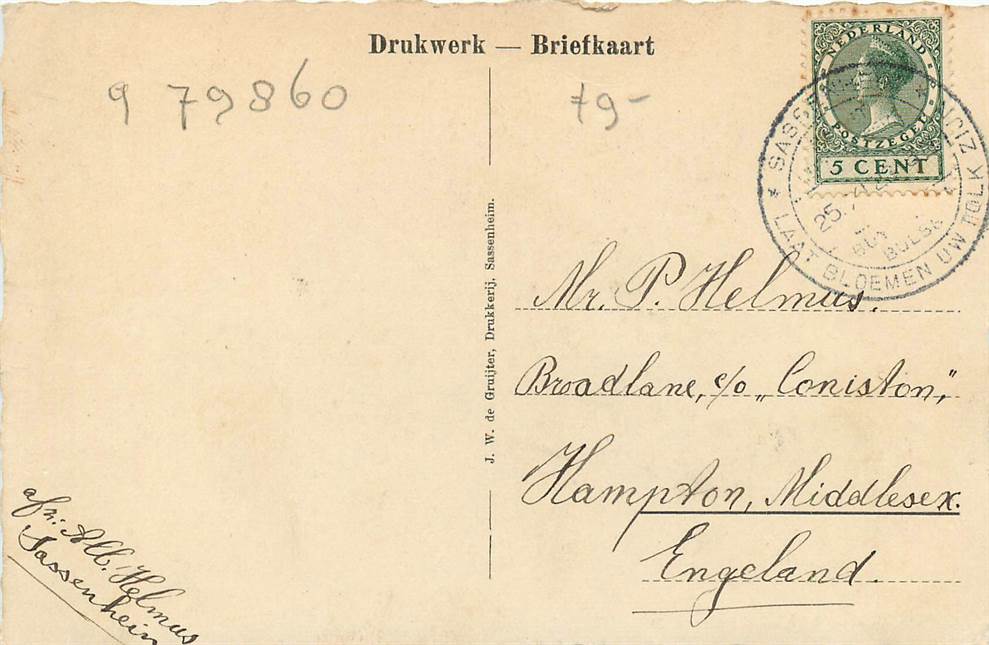 Drukwerk — Briefkaart
9 79860
79-
NEDERLAND
POSTZEGEL
5 CENT
SASSENHEIM
25.
BUY
BULBS
LAAT BLOEMEN UW TOLK ZIJN
J. W. de Gruijter, Drukkerij, Sassenheim.
Mr. P. Helmus.
Broadlane, c/o „Coniston,"
Hampton, Middlesex.
Engeland.
afz: Alb. Helmus
Sassenheim